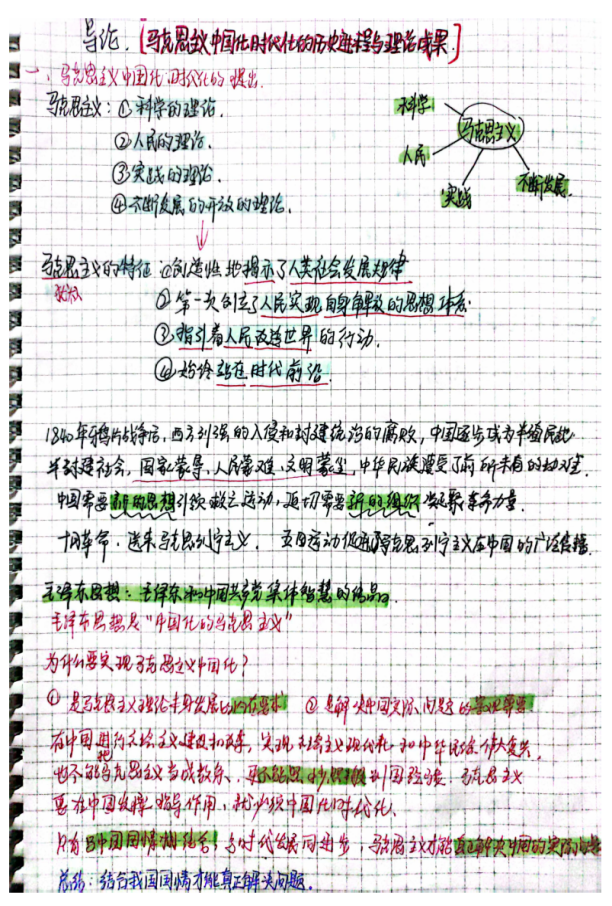 导论.【马克思主义中国化时代化的历史进程与理论成果.】
一、马克思主义中国化时代化的提出.
马克思主义:①科学的理论.
②人民的理论.
③实践的理论.
④不断发展的开放的理论.
科学
人民
马克思主义
实践
不断发展.
马克思主义的特征 ①创造性地揭示了人类社会发展规律
②第一次创立了人民实现自身解放的思想体系
③指引着人民改造世界的行动.
④始终站在时代前沿.
1840年鸦片战争后,西方列强的入侵和封建统治的腐败,中国逐步成为半殖民地
半封建社会,国家蒙辱、人民蒙难、文明蒙尘,中华民族遭受了前所未有的劫难.
中国需要新的思想引领救亡运动,迫切需要新的组织凝聚革命力量.
十月革命,送来马克思列宁主义. 五四运动促进马克思列宁主义在中国的广泛传播.
毛泽东思想:毛泽东和中国共产党集体智慧的结晶.
毛泽东思想是“中国化的马克思主义”
为什么要实现马克思主义中国化?
①是马克思主义理论本身发展的内在要求 ②是解决中国实际问题的客观需要
在中国进行社会主义建设和改革,实现社会主义现代化和中华民族伟大复兴,
也不能把马克思主义当成教条、更不能照抄照搬别国经验. 马克思主义
要在中国发挥指导作用,就必须中国化时代化.
只有与中国国情相结合,与时代发展同进步,马克思主义才能真正解决中国的实际问题
总结:结合我国国情才能真正解决问题.